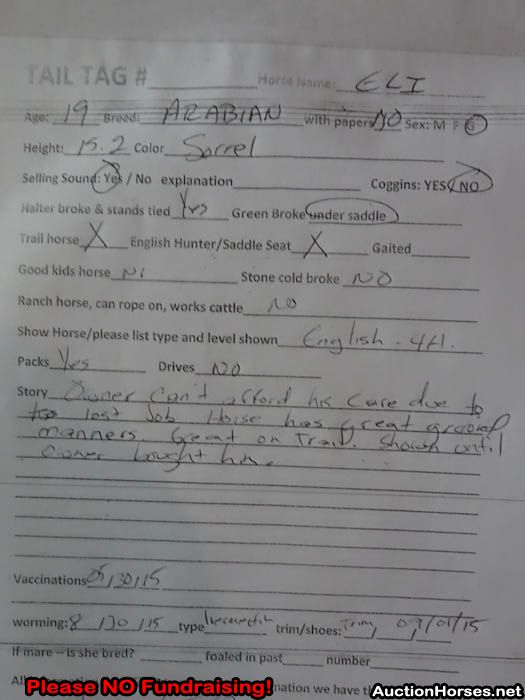 TAIL TAG # Horse Name: ELI
Age: 19 Breed: ARABIAN with papers NO Sex: M F G
Height: 15.2 Color Sorrel
Selling Sound: Yes / No explanation Coggins: YES / NO
Halter broke & stands tied Yes Green Broke under saddle
Trail horse X English Hunter/Saddle Seat X Gaited
Good kids horse Stone cold broke NO
Ranch horse, can rope on, works cattle NO
Show Horse/please list type and level shown English - 4H.
Packs Yes Drives NO
Story Owner can't afford his care due to
lost Job Horse has great ground
manners. Great on Trail. Shown until
owner bought him.
Vaccinations 05/30/15
worming: 8/30/15 type Ivermectin trim/shoes: Trim,
If mare – is she bred? foaled in past number
mation we have
Please NO Fundraising!
AuctionHorses.net